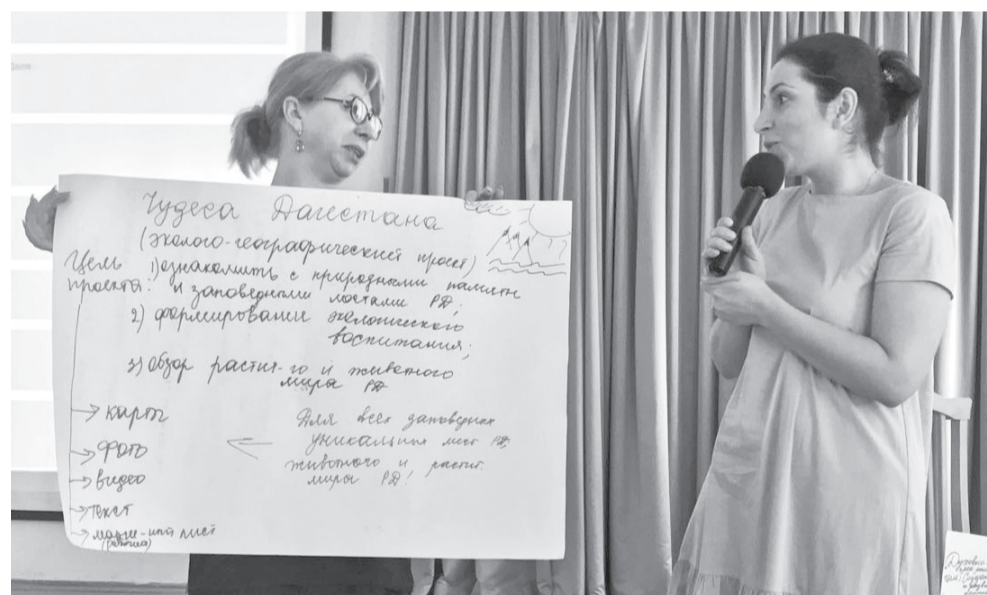 Чудеса Дагестана
(эколого-географический проект)
Цель проекта:
1) ознакомить с природными памятн
и заповедными местами РД;
2) формирование экологического
воспитания;
3) обзор растит-го и животного
мира РД
карты
фото
видео
текст
лист
Для всех заповедных
уникальных мест РД,
животного и растит.
мира РД!